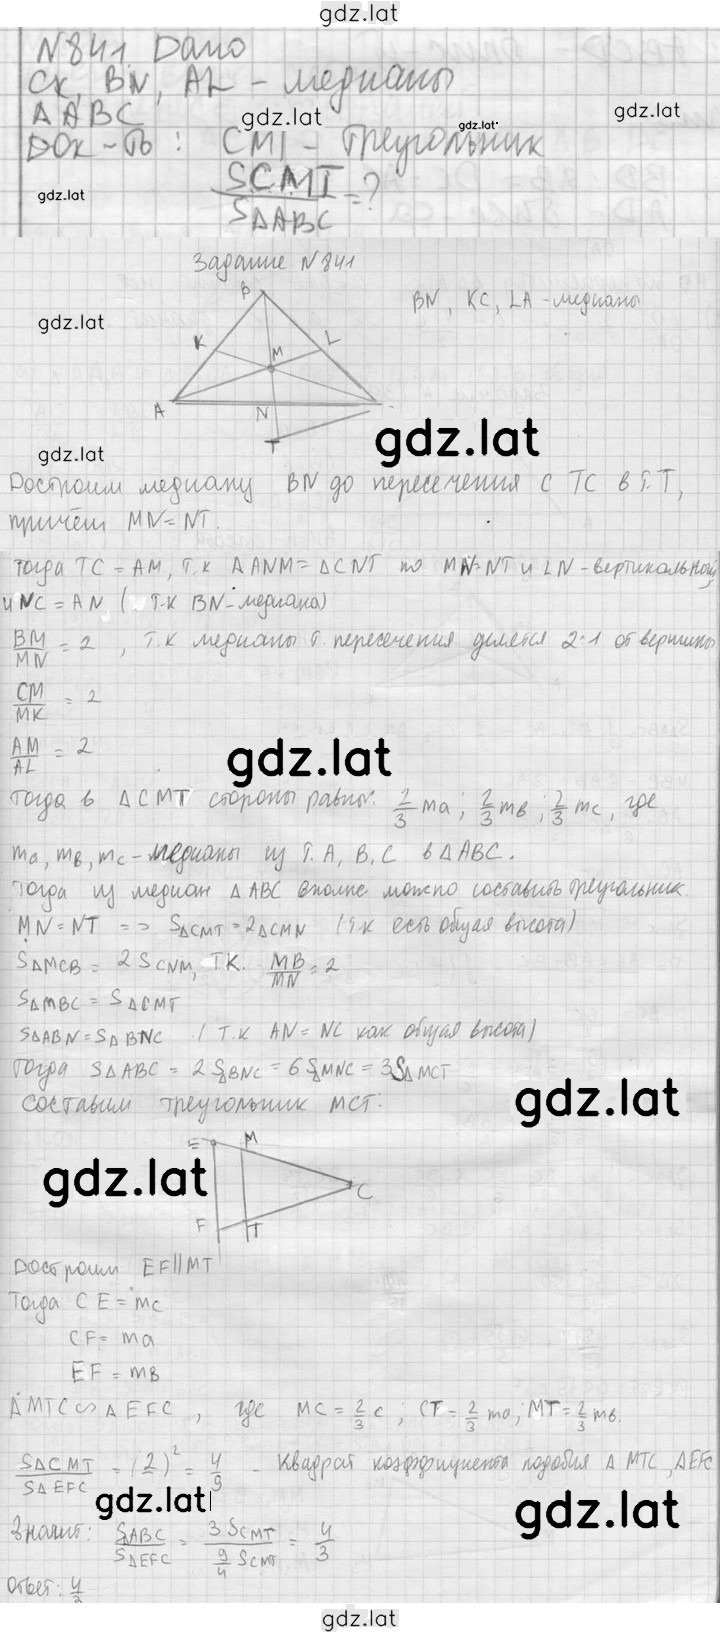 gdz.lat
N841 Дано
CK, BN, AL - медианы
gdz.lat gdz.lat gdz.lat
ΔABC
Док-ть: CMT - треугольник
gdz.lat
SCMT / SΔABC = ?
Задание N841
B
BN, KC, LA - медианы
gdz.lat
K M L
A N
T
gdz.lat
gdz.lat
Достроим медиану BN до пересечения с TC в т. T,
причём MN = NT.
Тогда TC = AM, т.к ΔANM = ΔCNT по MN=NT и ∠N - вертикальный,
и NC = AN (т.к BN - медиана)
BM/MN = 2, т.к медианы т. пересечения делятся 2:1 от вершины
CM/MK = 2
AM/AL = 2
gdz.lat
Тогда в ΔCMT стороны равны: 2/3 ma; 2/3 mв; 2/3 mc, где
ma, mв, mc - медианы из т. A, B, C в ΔABC.
Тогда из медиан ΔABC вполне можно составить треугольник.
MN = NT => SΔCMT = 2ΔCMN (т.к есть общая высота)
SΔMCB = 2SCNM, т.к. MB/MN = 2
SΔMBC = SΔCMT
SΔABN = SΔBNC (т.к AN = NC как общая высота)
Тогда SΔABC = 2SΔBNC = 6SΔMNC = 3SΔMCT
gdz.lat
Составим треугольник MCT:
E M
gdz.lat
C
F T
Достроим EF||MT
Тогда CE = mc
CF = ma
EF = mв
ΔMTC∽ΔEFC, где MC = 2/3 c; CT = 2/3 ma; MT = 2/3 mв.
SΔCMT / SΔEFC = (2)² = 4/9 - Квадрат коэффициента подобия Δ MTC, ΔEFC
gdz.lat
gdz.lat
Значит: SABC / SΔEFC = 3SCMT / 9/4 SCMT = 4/3
Ответ: 4/3
gdz.lat